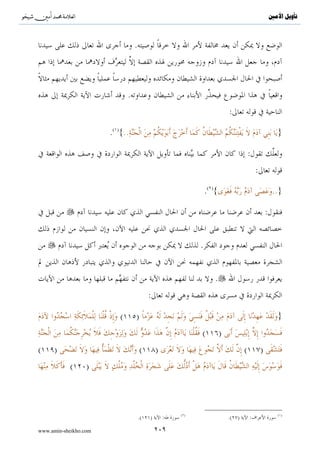 تأويل الأمين
العلامة محمد أمين شيخو
الوضع ولا يمكن أن يعد مخالفة لأمر الله ولا خرقاً لوصيته. وما أجرى الله تعالى ذلك على سيدنا
آدم، وما جعل الله سيدنا آدم وزوجه محورين لهذه القصة إلاَّ ليتعرَّف أولادهما من بعدهما إذا هم
أصبحوا في الحال الجسدي بعداوة الشيطان ومكائده وليعطيهم درساً عملياً ويضع بين أيديهم مثالاً
واقعياً في هذا الموضوع فيحذَر الأبناء من الشيطان وعداوته. وقد أشارت الآية الكريمة إلى هذه
الناحية في قوله تعالى:
{يَا بَنِي آدَمَ لَا يَفْتِنَنَّكُمُ الشَّيْطَانُ كَمَا أَخْرَجَ أَبَوَيْكُم مِّنَ الْجَنَّةِ..}(١).
ولعلَّك تقول: إذا كان الأمر كما بيَّناه فما تأويل الآية الكريمة الواردة في وصف هذه الواقعة في
قوله تعالى:
{..وَعَصَى آدَمُ رَبَّهُ فَغَوَى}(٢).
فنقول: بعد أن عرضنا ما عرضناه من أن الحال النفسي الذي كان عليه سيدنا آدم ﷺ من قبل في
خصائصه التي لا تنطبق على الحال الجسدي الذي نحن عليه الآن، وإن النسيان من لوازم ذلك
الحال النفسي لعدم وجود الفكر. لذلك لا يمكن بوجه من الوجوه أن يُعتبر أكل سيدنا آدم ﷺ من
الشجرة معصية بالمفهوم الذي نفهمه نحن الآن في حالنا الدنيوي والذي يتبادر لأذهان الذين لم
يعرفوا قدر رسول الله ﷺ. ولا بد لنا لفهم هذه الآية من أن نتفهَّم ما قبلها وما بعدها من الآيات
الكريمة الواردة في مسرى هذه القصة وهي قوله تعالى:
{وَلَقَدْ عَهِدْنَا إِلَى آدَمَ مِنْ قَبْلُ فَنَسِيَ وَلَمْ نَجِدْ لَهُ عَزْماً (١١٥) وَإِذْ قُلْنَا لِلْمَلَائِكَةِ اسْجُدُوا لِآدَمَ
فَسَجَدُوا إِلَّا إِبْلِيسَ أَبَى (١١٦) فَقُلْنَا يَاآدَمُ إِنَّ هَذَا عَدُوٌّ لَكَ وَلِزَوْجِكَ فَلَا يُخْرِجَنَّكُمَا مِنَ الْجَنَّةِ
فَتَشْقَى (١١٧) إِنَّ لَكَ أَلَّا تَجُوعَ فِيهَا وَلَا تَعْرَى (١١٨) وَأَنَّكَ لَا تَظْمَأُ فِيهَا وَلَا تَضْحَى (١١٩)
فَوَسْوَسَ إِلَيْهِ الشَّيْطَانُ قَالَ يَاآدَمُ هَلْ أَدُلُّكَ عَلَى شَجَرَةِ الْخُلْدِ وَمُلْكٍ لَا يَبْلَى (١٢٠) فَأَكَلَا مِنْهَا
(١) سورة الأعراف: الآية (٢٧).
(٢) سورة طه: الآية (١٢١).
٢٠٩
www.amin-sheikho.com